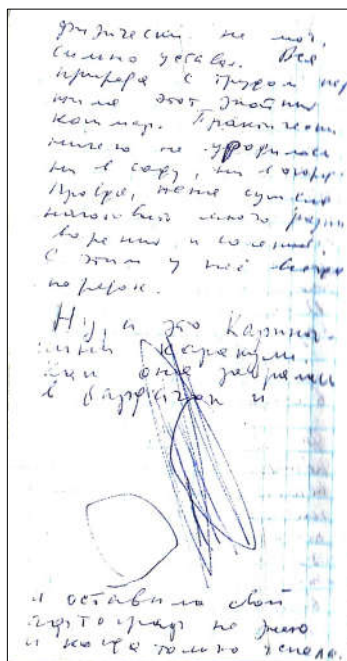 физически не мог,
сильно уставал. Вся
природа с трудом пер
этот знойный
кошмар. Практически
ничего не уродилось
ни в саду, ни в огоро
Правда, сумела
наготовить много разн
варений и солений.
С этим у неё всегда
порядок.
Ну, а это Карина
каракули.
она забралась
в бардачок и
и оставила свой
автограф не знаю
и когда только успела.